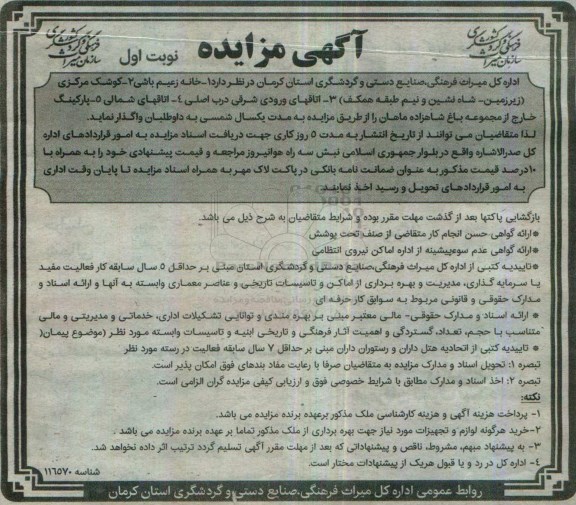 آگهی مزایده
نوبت اول
اداره کل میراث فرهنگی،صنایع دستی و گردشگری استان کرمان در نظر دارد۱-خانه زعیم باشی۲-کوشک مرکزی
(زیرزمین- شاه نشین و نیم طبقه همکف) ۳- اتاقهای ورودی شرقی درب اصلی ۴- اتاقهای شمالی ۵-پارکینگ
خارج از مجموعه باغ شاهزاده ماهان را از طریق مزایده به مدت یکسال شمسی به داوطلبان واگذار نماید.
لذا متقاضیان می توانند از تاریخ انتشار به مدت ۵ روز کاری جهت دریافت اسناد مزایده به امور قراردادهای اداره
کل صدرالاشاره واقع در بلوار جمهوری اسلامی نبش سه راه هوانیروز مراجعه و قیمت پیشنهادی خود را به همراه با
۱۰درصد قیمت مذکور به عنوان ضمانت نامه بانکی در پاکت لاک مهر به همراه اسناد مزایده تا پایان وقت اداری
به امور قراردادهای تحویل و رسید اخذ نمایند.
بازگشایی پاکتها بعد از گذشت مهلت مقرر بوده و شرایط متقاضیان به شرح ذیل می باشد.
*ارائه گواهی حسن انجام کار متقاضی از صنف تحت پوشش
*ارائه گواهی عدم سوءپیشینه از اداره اماکن نیروی انتظامی
*تاییدیه کتبی از اداره کل میراث فرهنگی،صنایع دستی و گردشگری استان مبنی بر حداقل ۵ سال سابقه کار فعالیت مفید
یا سرمایه گذاری، مدیریت و بهره برداری از اماکن و تاسیسات تاریخی و عناصر معماری وابسته به آنها و ارائه اسناد و
مدارک حقوقی و قانونی مربوط به سوابق کار حرفه ای
* ارائه اسناد و مدارک حقوقی- مالی معتبر مبنی بر بهره مندی و توانایی تشکیلات اداری، خدماتی و مدیریتی و مالی
متناسب با حجم، تعداد، گستردگی و اهمیت آثار فرهنگی و تاریخی ابنیه و تاسیسات وابسته مورد نظر (موضوع پیمان(
* تاییدیه کتبی از اتحادیه هتل داران و رستوران داران مبنی بر حداقل ۷ سال سابقه فعالیت در رسته مورد نظر
تبصره ۱: تحویل اسناد و مدارک مزایده به متقاضیان صرفا با رعایت مفاد بندهای فوق امکان پذیر است.
تبصره ۲: اخذ اسناد و مدارک مطابق با شرایط خصوصی فوق و ارزیابی کیفی مزایده گران الزامی است.
نکته:
۱- پرداخت هزینه آگهی و هزینه کارشناسی ملک مذکور برعهده برنده مزایده می باشد.
۲-خرید هرگونه لوازم و تجهیزات مورد نیاز جهت بهره برداری از ملک مذکور تماما بر عهده برنده مزایده می باشد .
۳- به پیشنهاد مبهم، مشروط، ناقص و پیشنهاداتی که بعد از مهلت مقرر آگهی تسلیم گردد ترتیب اثر داده نخواهد شد.
۴- اداره کل در رد و یا قبول هریک از پیشنهادات مختار است.
شناسه ۱۱۶۵۷۰
روابط عمومی اداره کل میراث فرهنگی،صنایع دستی و گردشگری استان کرمان